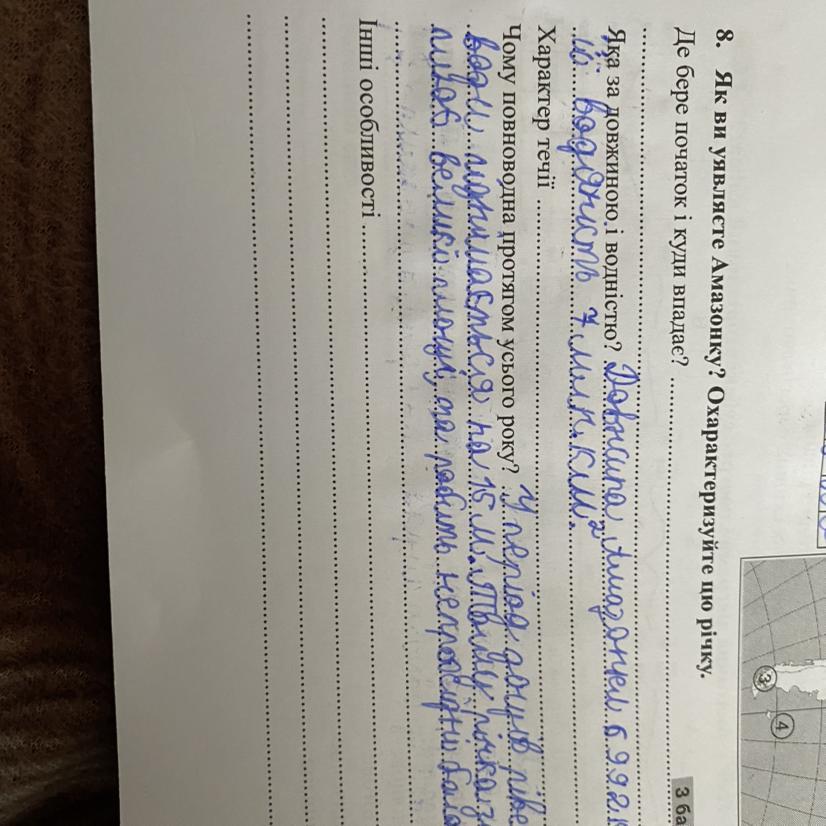 8. Як ви уявляєте Амазонку? Охарактеризуйте цю річку.
Де бере початок і куди впадає?
3 ба
Яка за довжиною і водністю? Довжина Амазонки 6992
її водяність 7 млн. км²
Характер течії
Чому повноводна протягом усього року? У період дощів ріве
води піднімається на 15 м. Тому річка
великі площі, та робить непрохідні
Інші особливості
3
4